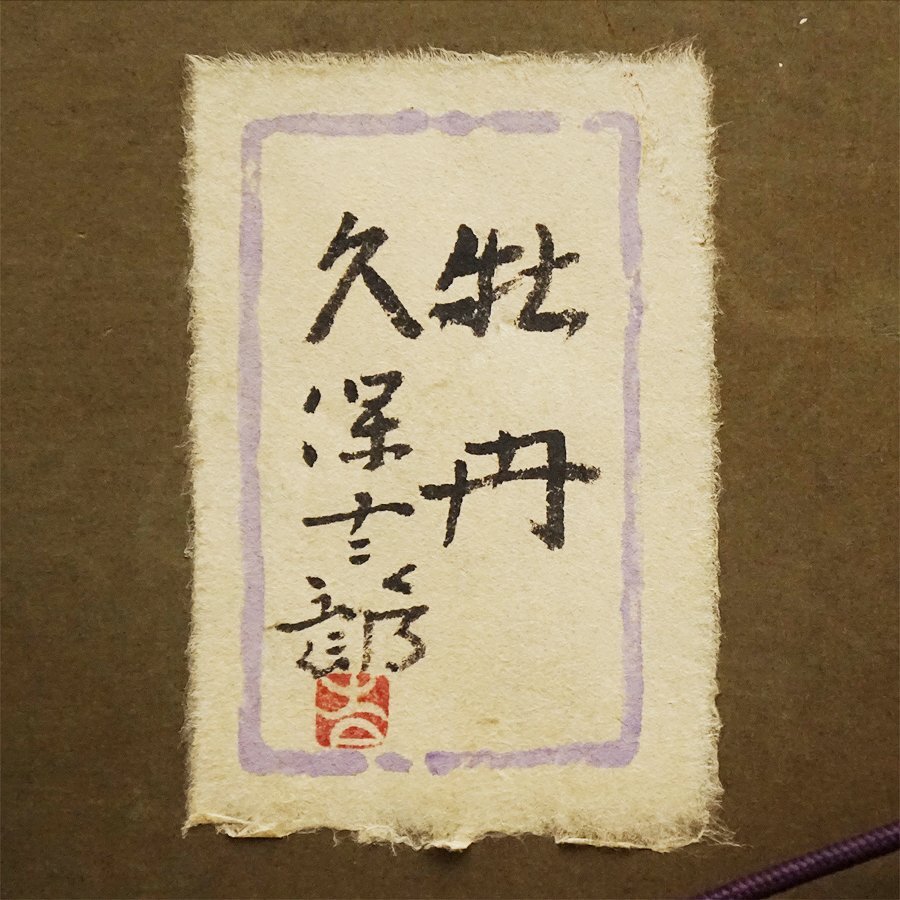 牡丹
久保吉郎